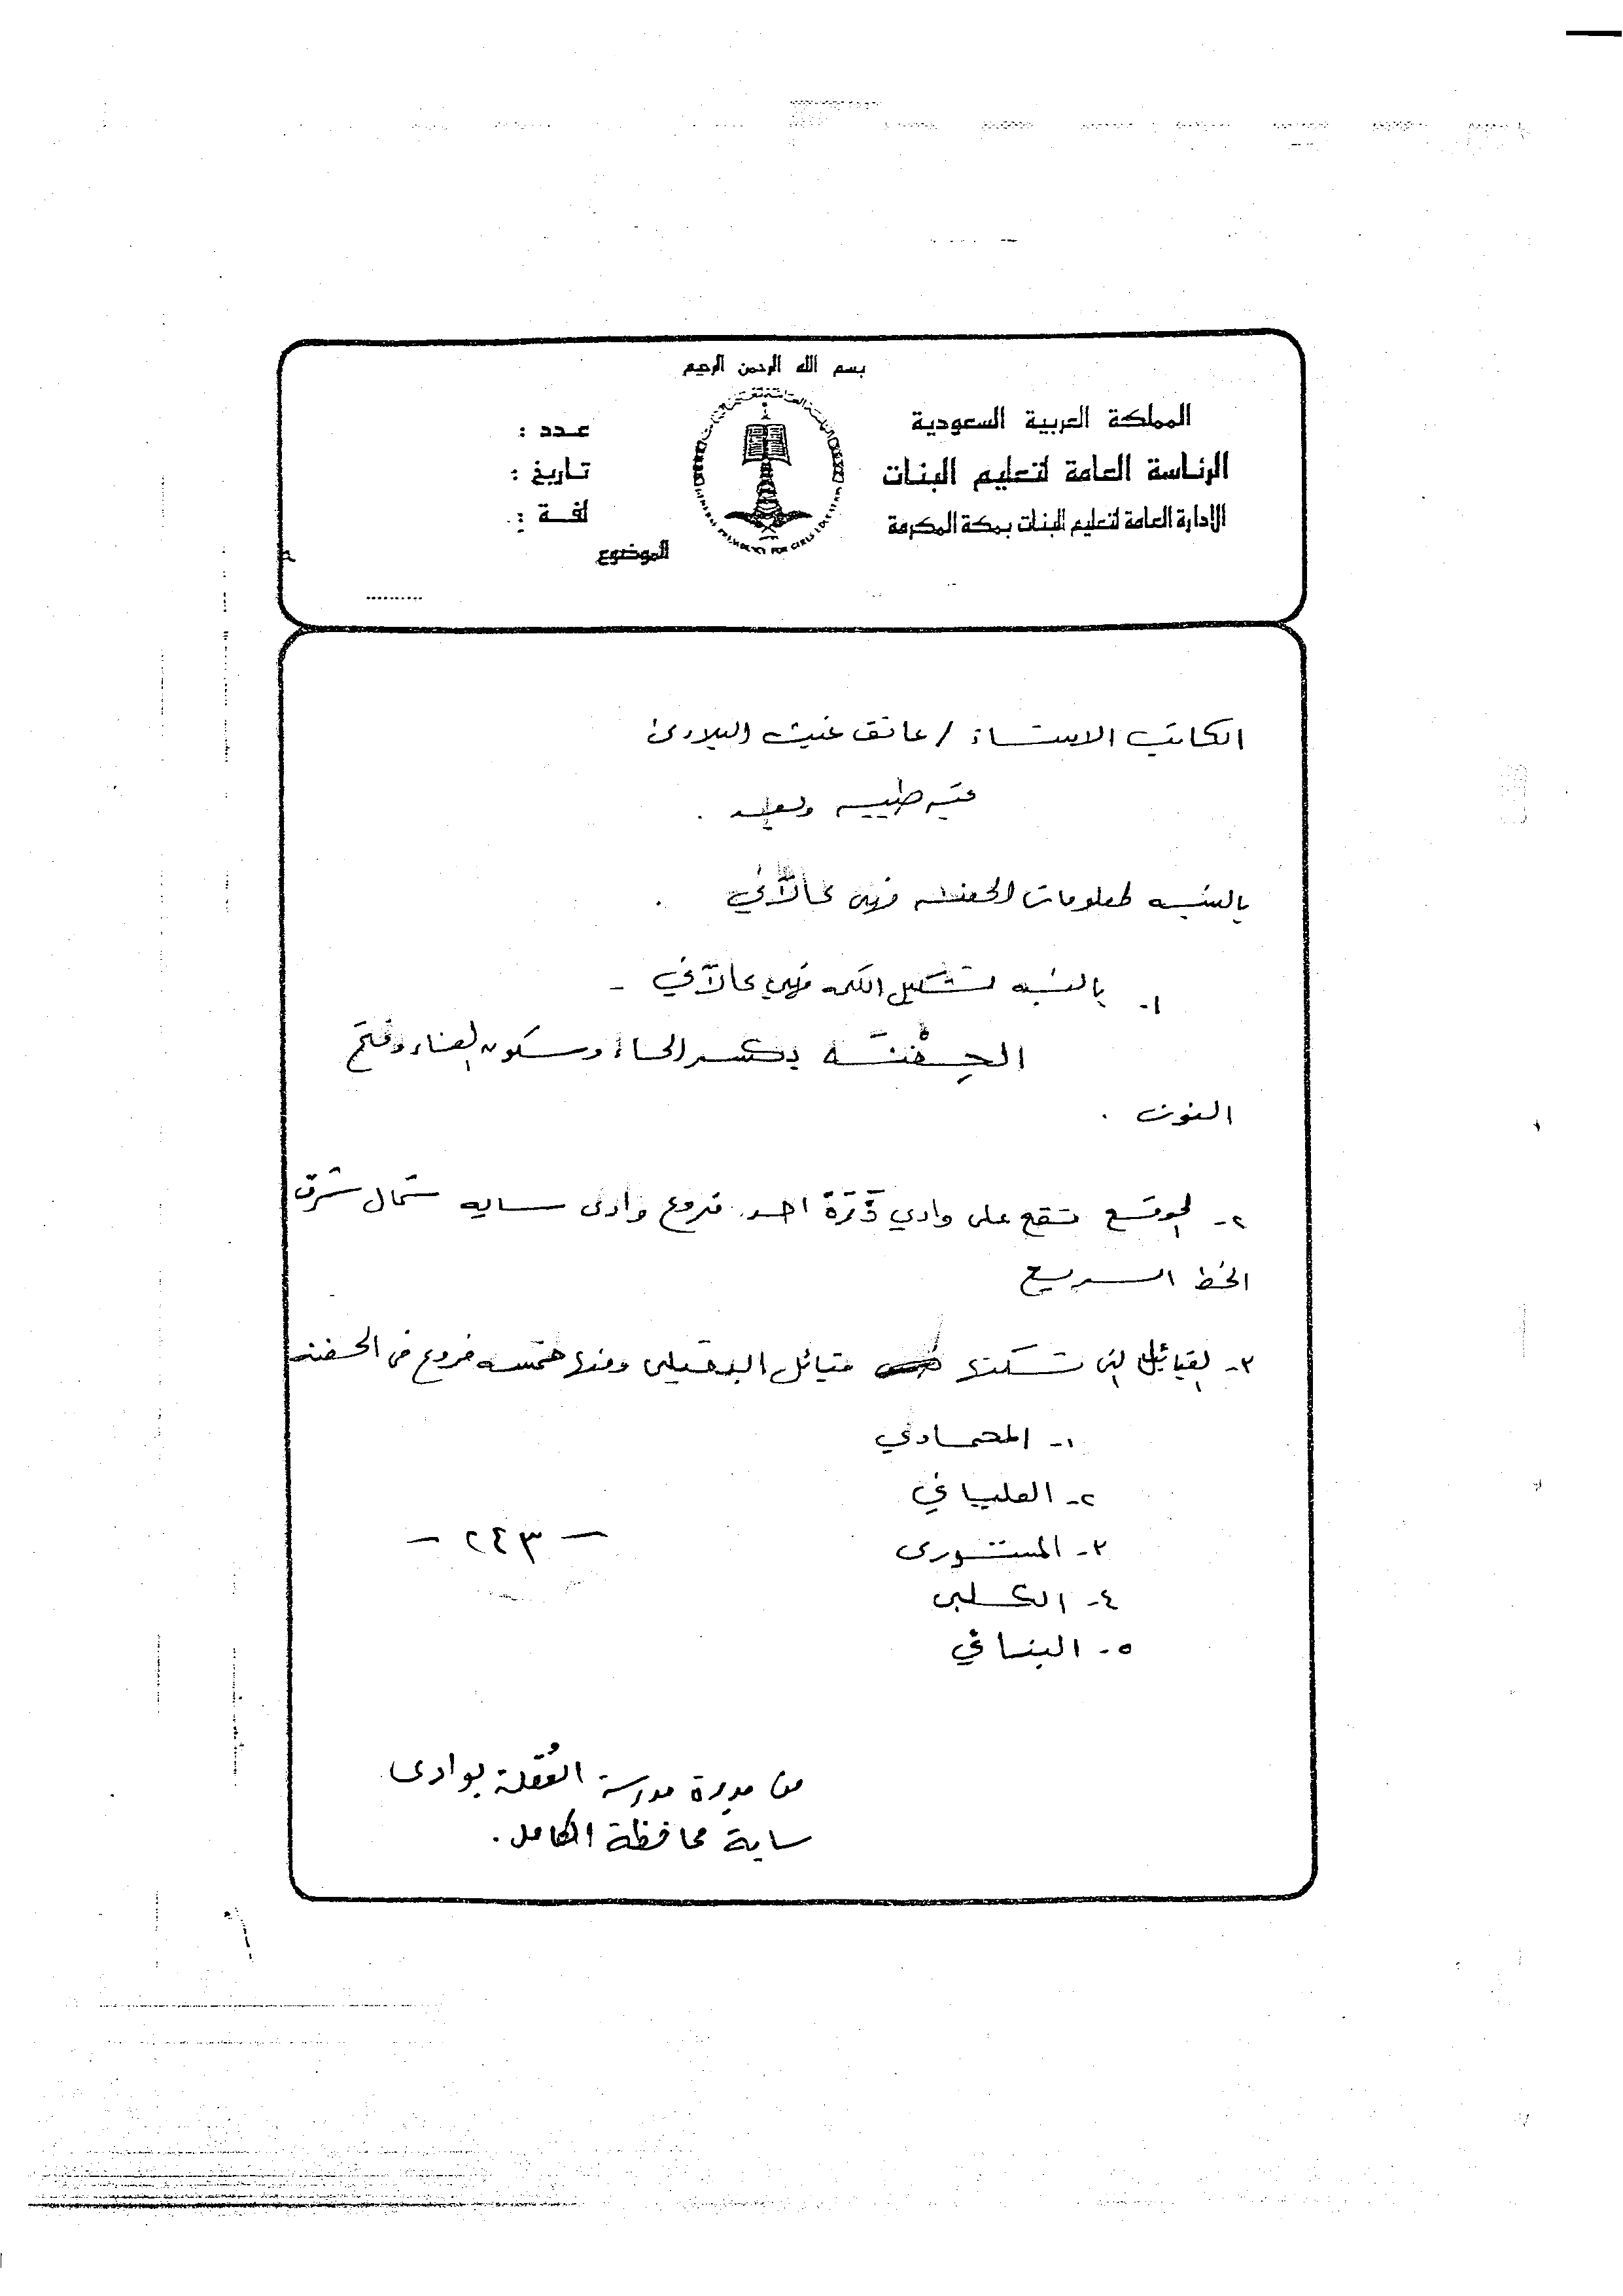 بسم الله الرحمن الرحيم
المملكة العربية السعودية
الرئاسة العامة لتعليم البنات
الادارة العامة لتعليم البنات بمكة المكرمة
عدد :
تاريخ :
لفة :
الموضوع
..........
الكاتب الاستاذ / عاتق غيث البلادي
تحيه طيبه وبعد .
بالنسبه لمعلومات الحفنه فهي كالآتي .
١- بالنسبه لتشكيل الكلمه فهي كالآتي -
الحِفْنَه بكسر الحاء وسكون الفاء وفتح
النون .
٢- الموقع تقع على وادي ذَرَة احد فروع وادى سايه شمال شرق
الخط السريع
٣- القبائل التى تسكنها قبائل وفيها خمسه فروع فى الحفنه
١- المحمادي
٢- العلياني
٣- المستورى
٤- الكلبى
٥-
– ٢٤٣ –
من مديرة مدرسة العُقلة بوادى
ساية محافظة الكامل .